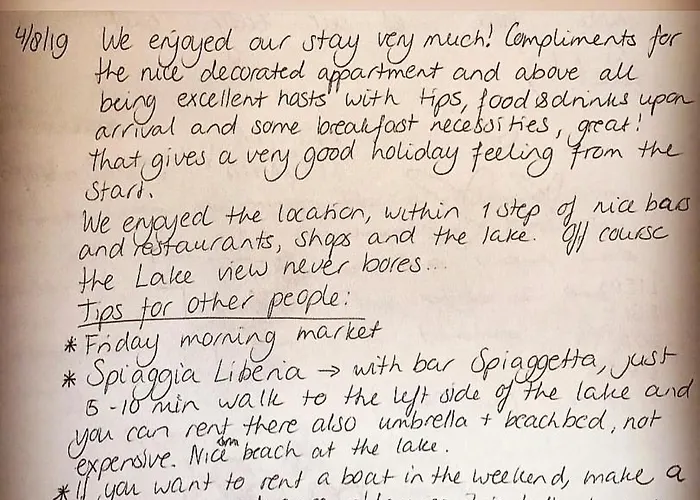 4/8/19 We enjoyed our stay very much! Compliments for
the nice decorated appartment and above all
being excellent hosts" with tips, food & drinks upon
arrival and some breakfast necessities, great!
that gives a very good holiday feeling from the
start.
We enjoyed the location, within 1 step of nice bars
and restaurants, shops and the lake. Off course
the Lake view never bores...
Tips for other people:
* Friday morning market
* Spiaggia Liberia → with bar Spiaggetta, just
5-10 min walk to the left side of the lake and
you can rent there also umbrella + beachbed, not
expensive. Nice beach at the lake.
* If you want to rent a boat in the weekend, make a